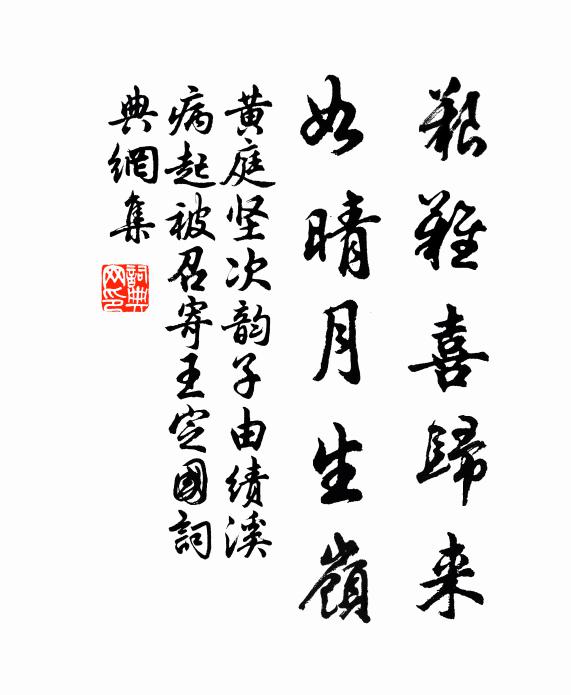 艱難喜歸来
如晴月生嶺
黄庭坚次韵子由績溪
病起被召寄王定國詞
典網集
詞典网印